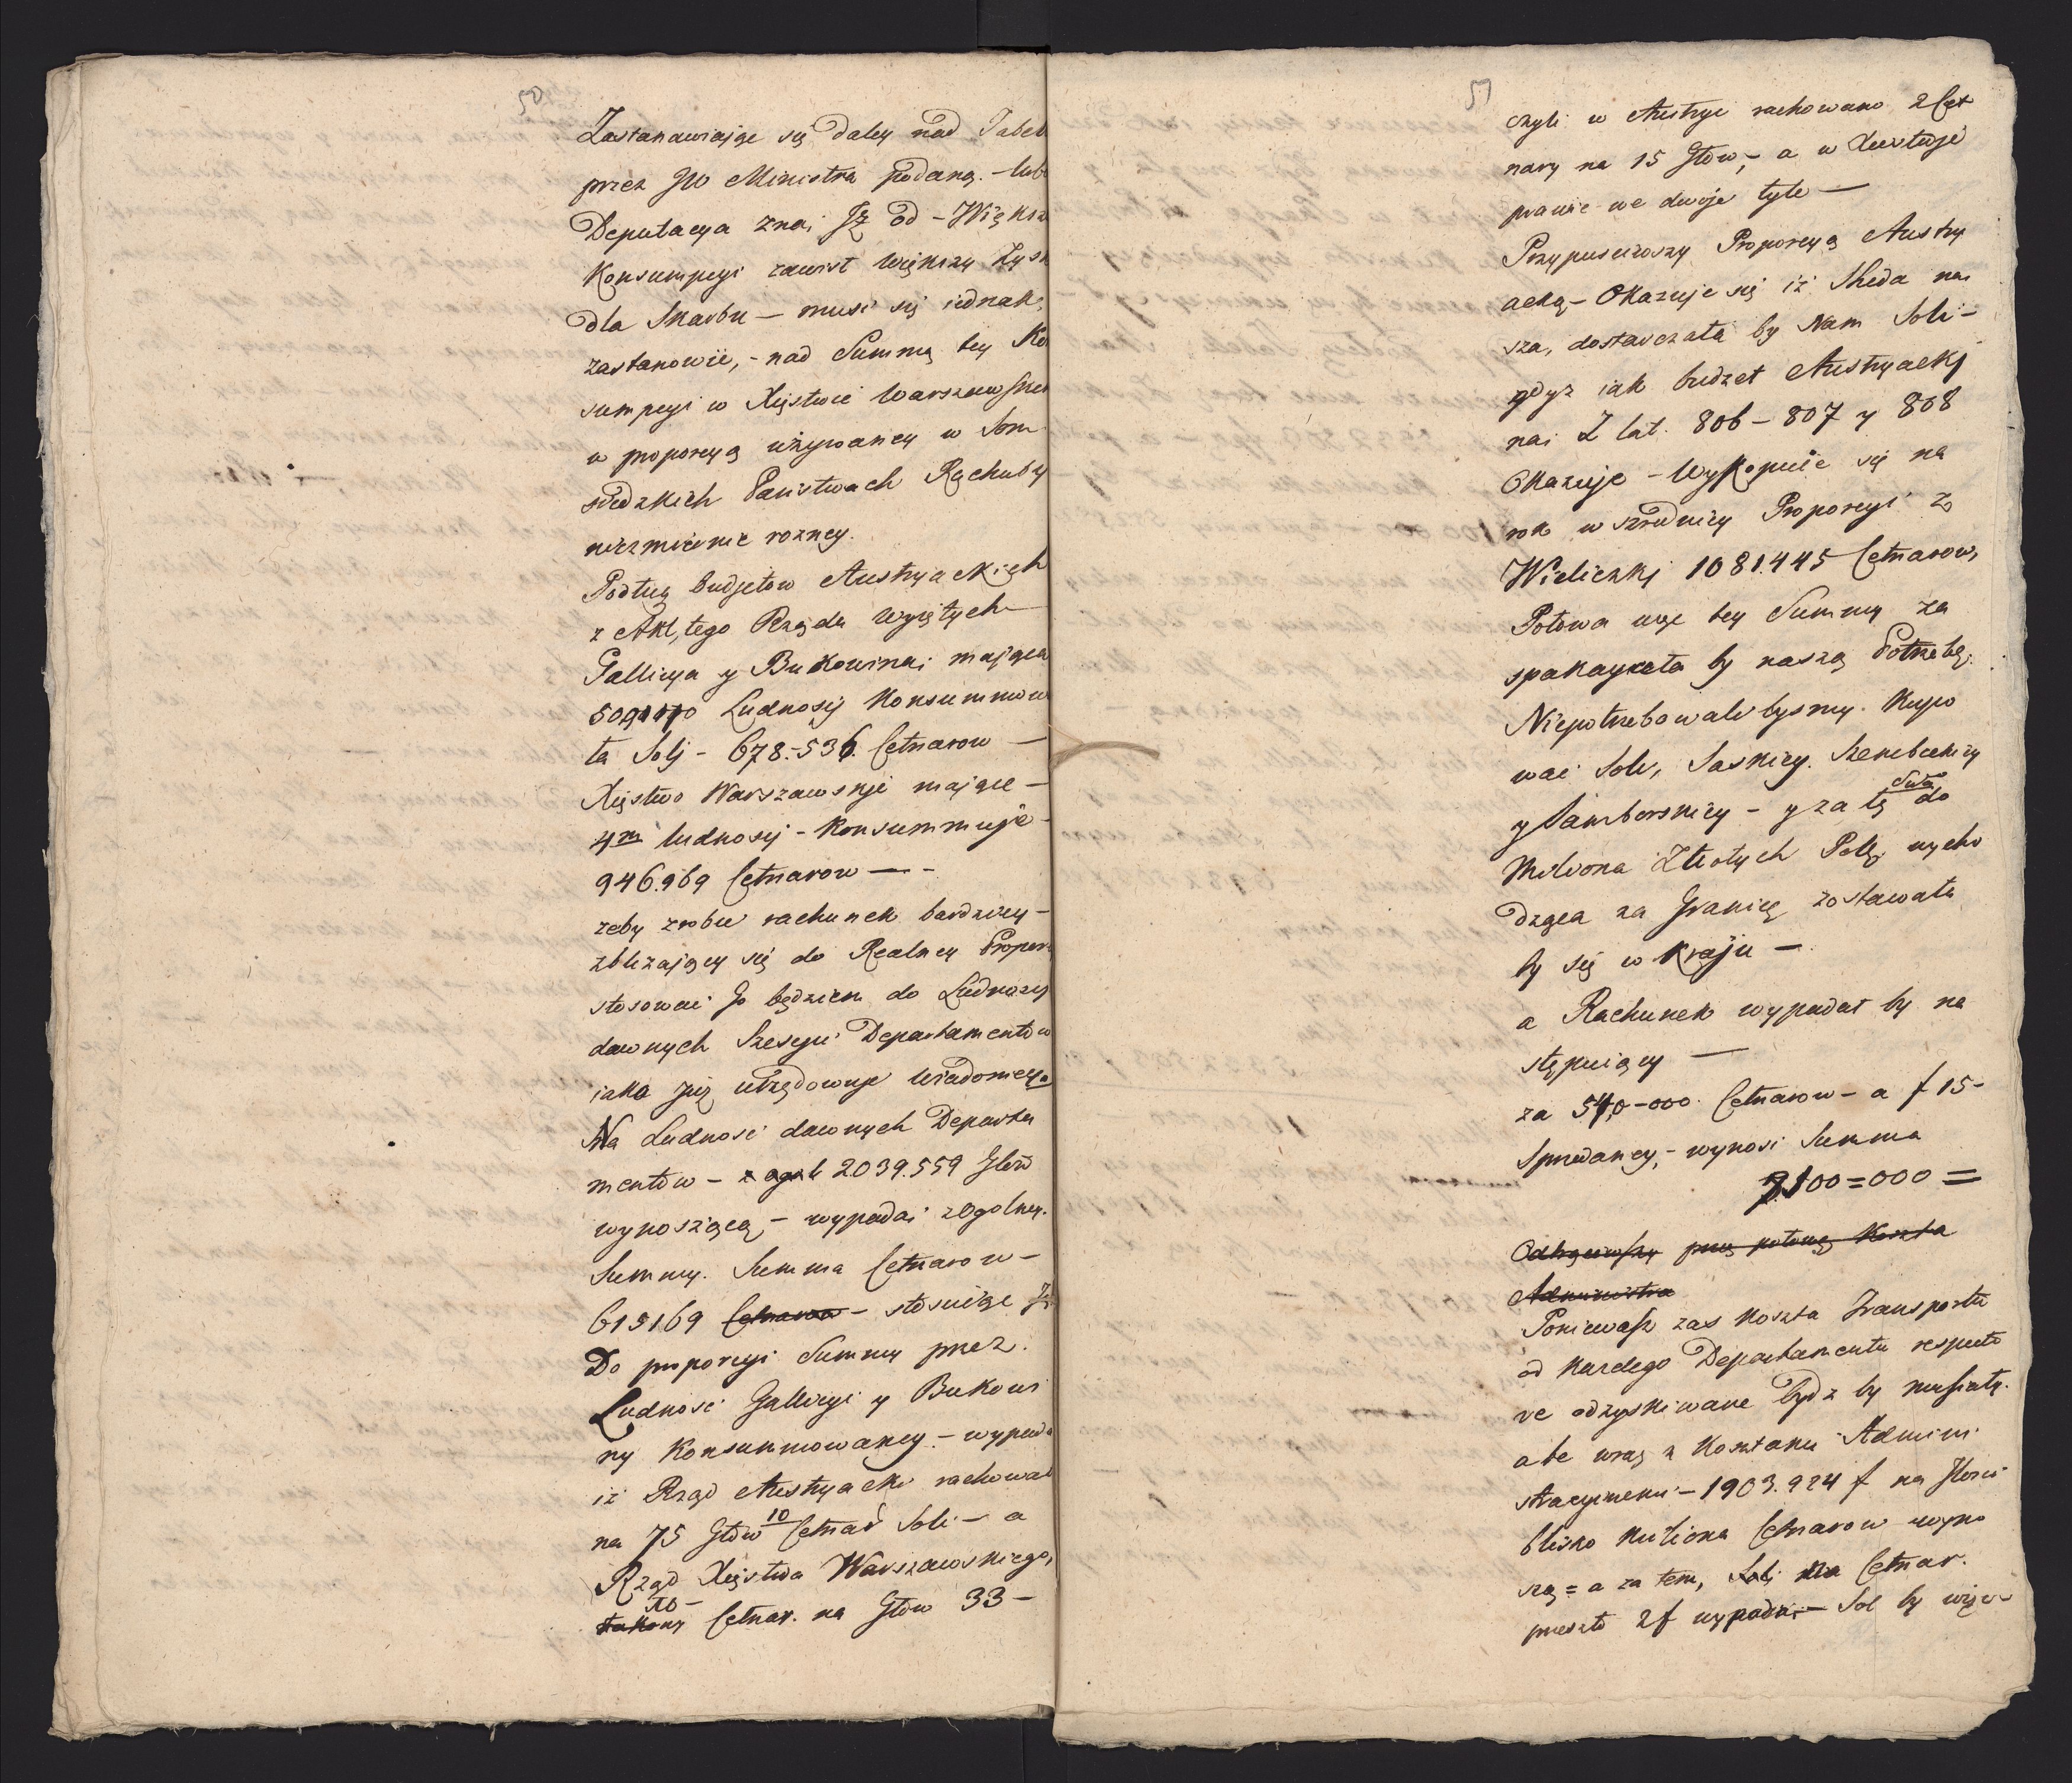 50
Zastanawiaiąc się daley nad Tabel
przez JW Ministra podaną. – lubo
Deputacya zna, Iż od – Większ
Konsumpcyi zawisł większy Zysk
dla Skarbu – musi się iednak
zastanowić, – nad Summą tey Ko
sumpcyi w Xięstwie Warszawskim
w proporcyą używaney w Som
siedzkich Państwach Rachuby
niezmiernie rozney.
Podług budżetow Austryackich
z Akt, tego Rządu Wyiętych
Gallicya y Bukowina, maiąca
Ludnosy Konsummow
ła Soly – 678.–536. Cetnarow —
Xięstwo Warszawskie maiące –
4m ludnosy – Konsummuje –
946.969 Cetnarow — –
zeby zrobic rachunek bardziey –
zbliżaiący się do Realney Propor
stosowac Go będziem do Ludnosy
dawnych Szesciu Departamentow
iako juz urzędownie wiadomey
Na Ludnosc dawnych Departa
mentow – 2039.559 Głow
wynoszącą, – wypada z Ogolney
Summy. Summa Cetnarow –
615169 Cetnarow – stosuiąc Ją
Do proporcyi Summy przez
Ludnosc Gallicyi y Bukowi
ny Konsummowaney – wypada
iż Rząd Austryacki rachował
na 75 Głow 10 Cetnar Soli – a
Rząd Xięstwa Warszawskiego,
10 –
Cetnar. na Głow 33 –
51
czyli w Austryi rachowano 2 Cet
nary na 15 Głow, – a w Xięstwie
prawie we dwoje tyle —
Przypusciwszy Proporcyą Austry
acką – Okazuje się iż Sheda na
sza, dostarczała by Nam Soli –
gdyz iak budzet Austryacki
na, Z lat. 806 – 807 y 808
Okazuje – Wykopuie się na
rok w srzednicy Proporcyi z
Wieliczki 1081.445 Cetnarow,
Połowa więc tey Summy za
spakaiała by naszą Potrzebę.
Niepotrzebowali bysmy. Kupo
wac Soli, Saskiey. Szenebeckiey
y Samborskiey – y za tę do
Miliona Złotych Pols. wycho
dząca za Granicę zostawała
by się w Kraju —
a Rachunek wypadał by na
stępuiący —
za 540–000. Cetnarow – a f 15 –
Sprzedaney, – wynosi Summa
8.100=000 =
Odtrąciwszy przez połowę Koszta
Administra
Poniewasz zas Koszta Transportu
od Kazdego Departamentu respecto
ve odzyskiwane bydz by musiały.
a te wraz z Kosztami Admini
stracyinemi – 1903.924 f na
blisko Miliona Cetnarow wyno
szą = a za tem, Cetnar.
przeszło 2 f wypada, – Sol by więc